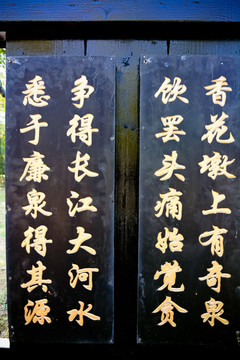 香花墩上有奇泉
饮罢头痛始觉贪
争得长江大河水
悉于廉泉得其源